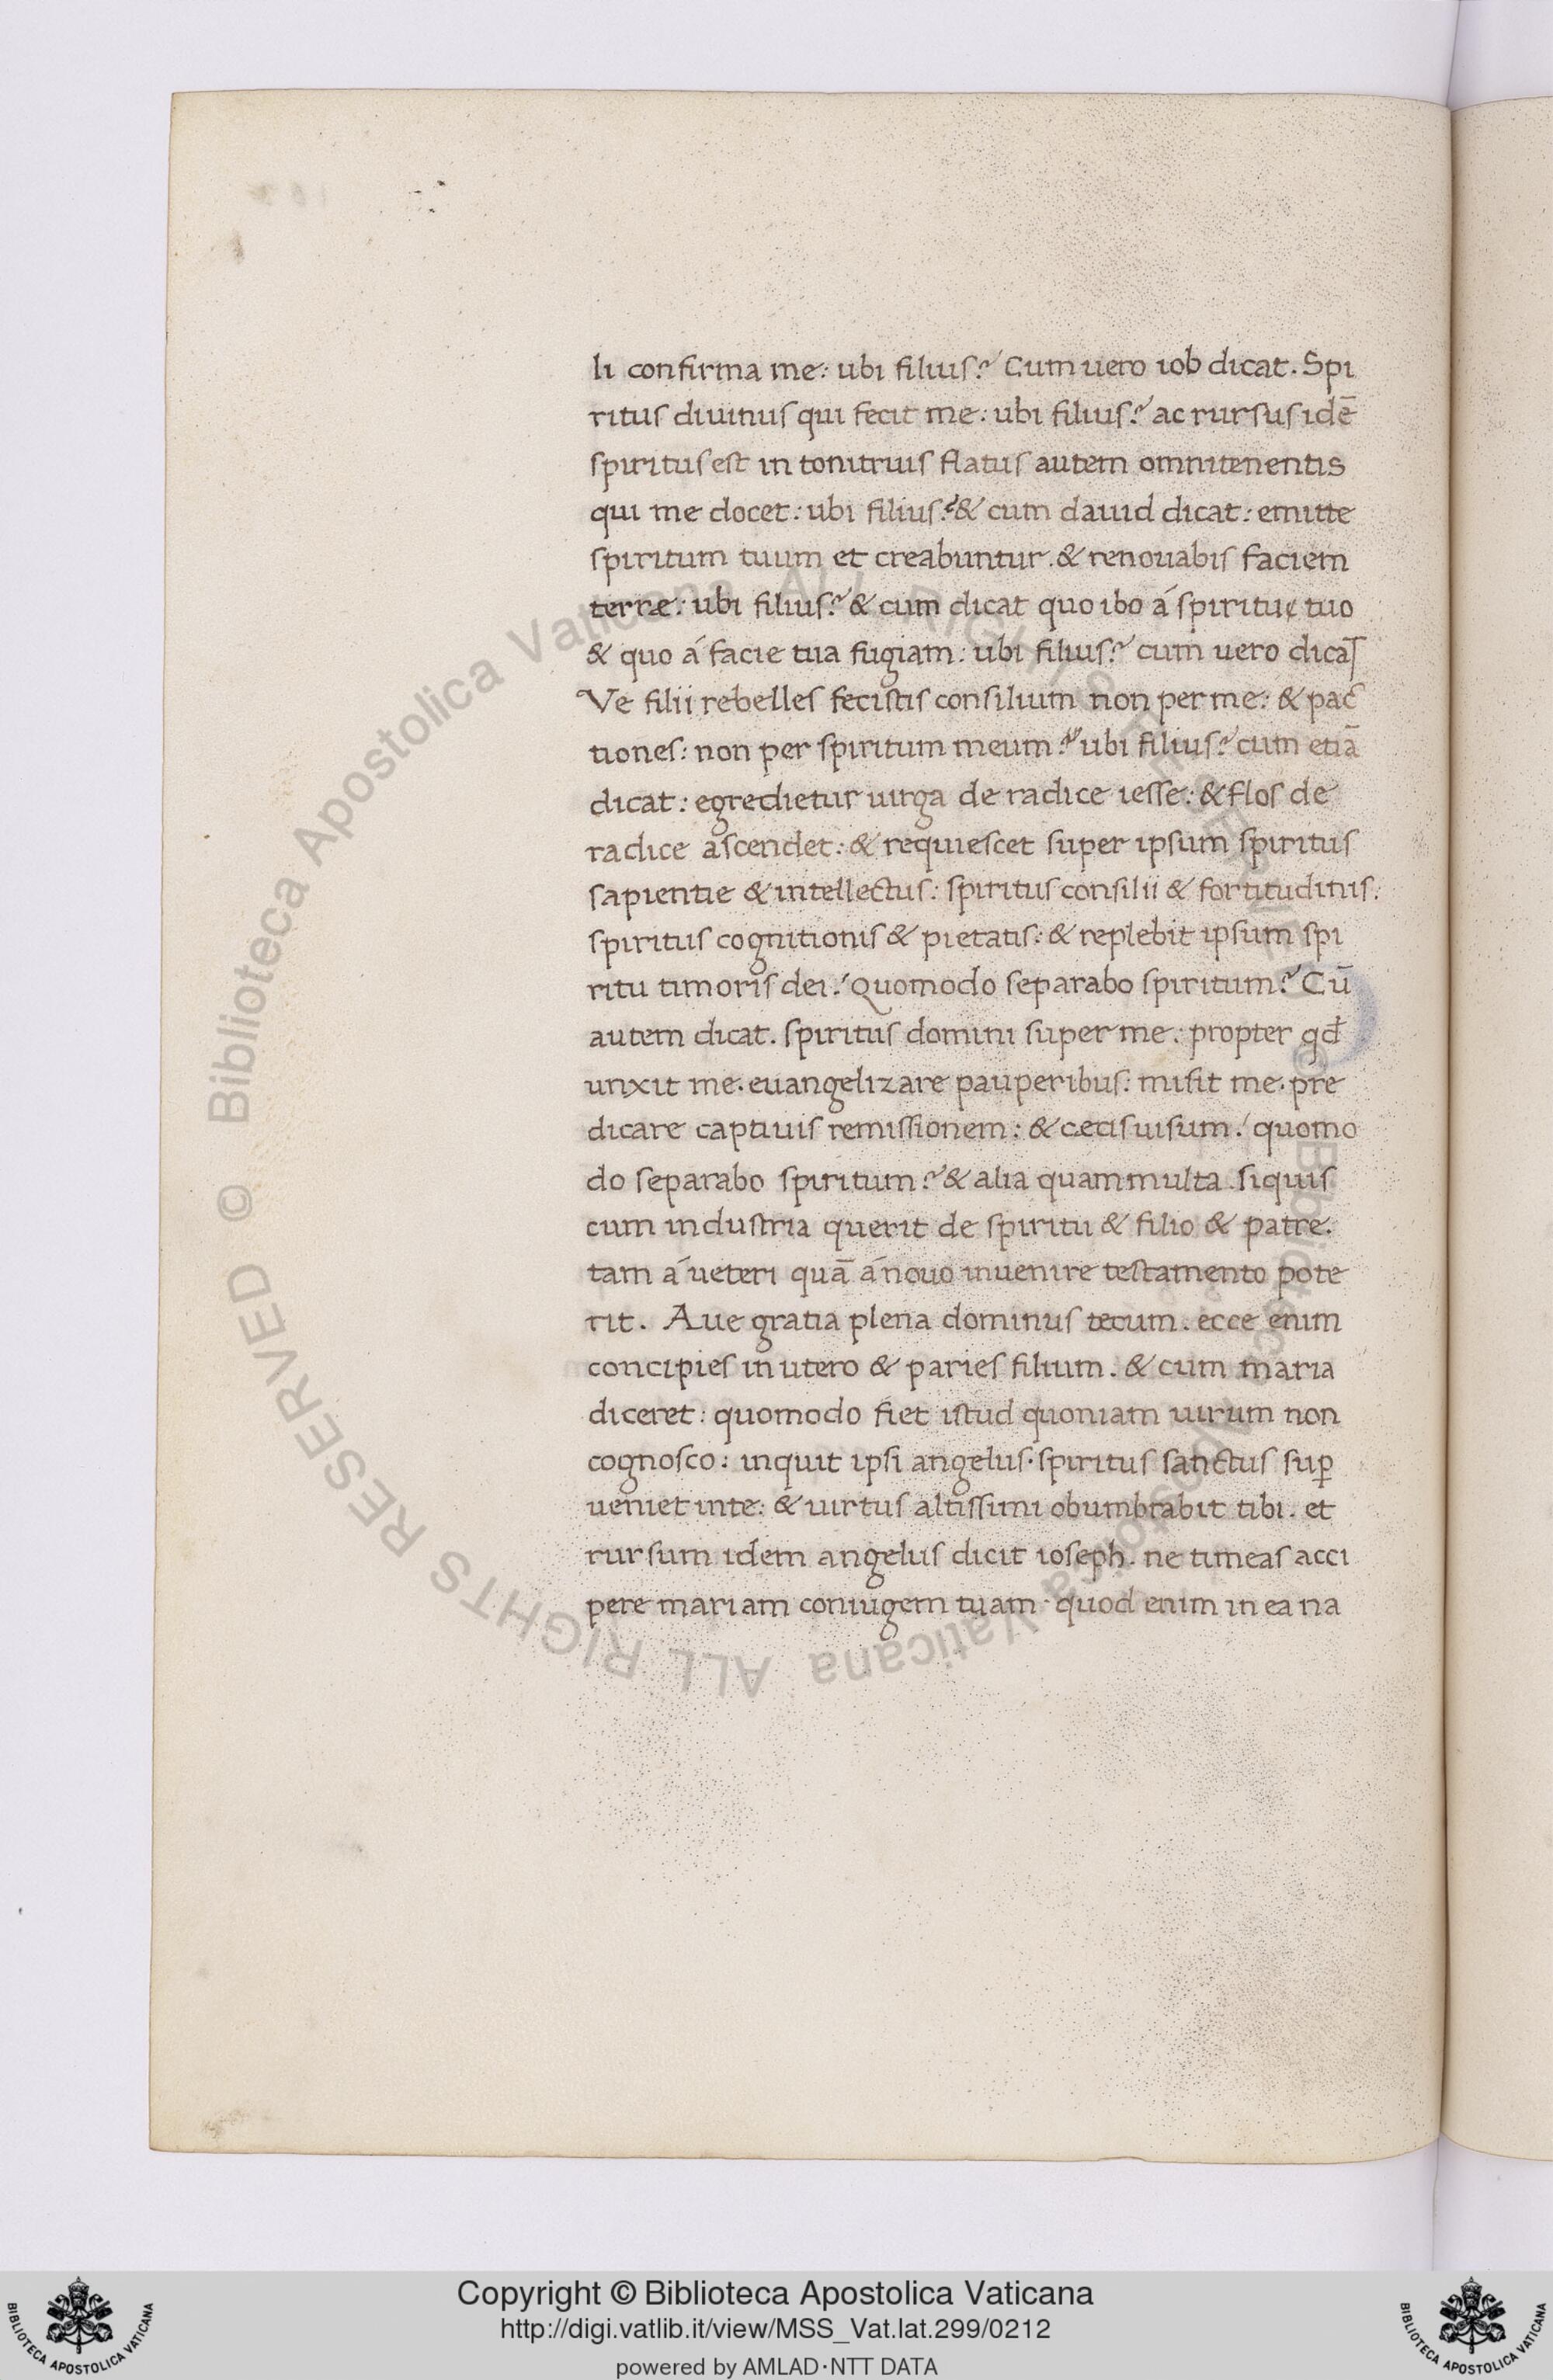 li confirma me: ubi filius? Cum uero iob dicat. Spi
ritus diuinus qui fecit me: ubi filius? ac rursus idē
spiritus est in tonitruis flatus autem omnitenentis
qui me docet: ubi filius? & cum dauid dicat: emitte
spiritum tuum et creabuntur. & renouabis faciem
terræ: ubi filius? & cum dicat quo ibo á spiritu tuo
& quo á facie tua fugiam: ubi filius? cum uero
Ve filii rebelles fecistis consilium non per me: &
tiones: non per spiritum meum? ubi filius? cum etiā
dicat: egredietur uirga de radice iesse: & flos de
radice ascendet: & requiescet super ipsum spiritus
sapientie & intellectus: spiritus consilii & fortitudinis:
spiritus cognitionis & pietatis: & replebit ipsum spi
ritu timoris dei! Quomodo separabo spiritum? Cū
autem dicat. spiritus domini super me: propter qđ
unxit me. euangelizare pauperibus: misit me. pre
dicare captiuis remissionem: & cecis uisum! quomo
do separabo spiritum? & alia quammulta. siquis
cum industria querit de spiritu & filio & patre:
tam á ueteri quā á nouo inuenire testamento pote
rit. Aue gratia plena dominus tecum. ecce enim
concipies in utero & paries filium. & cum maria
diceret: quomodo fiet istud quoniam uirum non
cognosco: inquit ipsi angelus. spiritus sanctus suꝑ
ueniet in te: & uirtus altissimi obumbrabit tibi. et
rursum idem angelus dicit ioseph. ne timeas acci
pere mariam coniugem tuam. quod enim in ea na
© Biblioteca Apostolica Vaticana ALL RIGHTS RESERVED
© Biblioteca Apostolica Vaticana ALL RIGHTS RESERVED
Copyright © Biblioteca Apostolica Vaticana
http://digi.vatlib.it/view/MSS_Vat.lat.299/0212
powered by AMLAD·NTT DATA
BIBLIOTECA APOSTOLICA VATICANA
BIBLIOTECA APOSTOLICA VATICANA